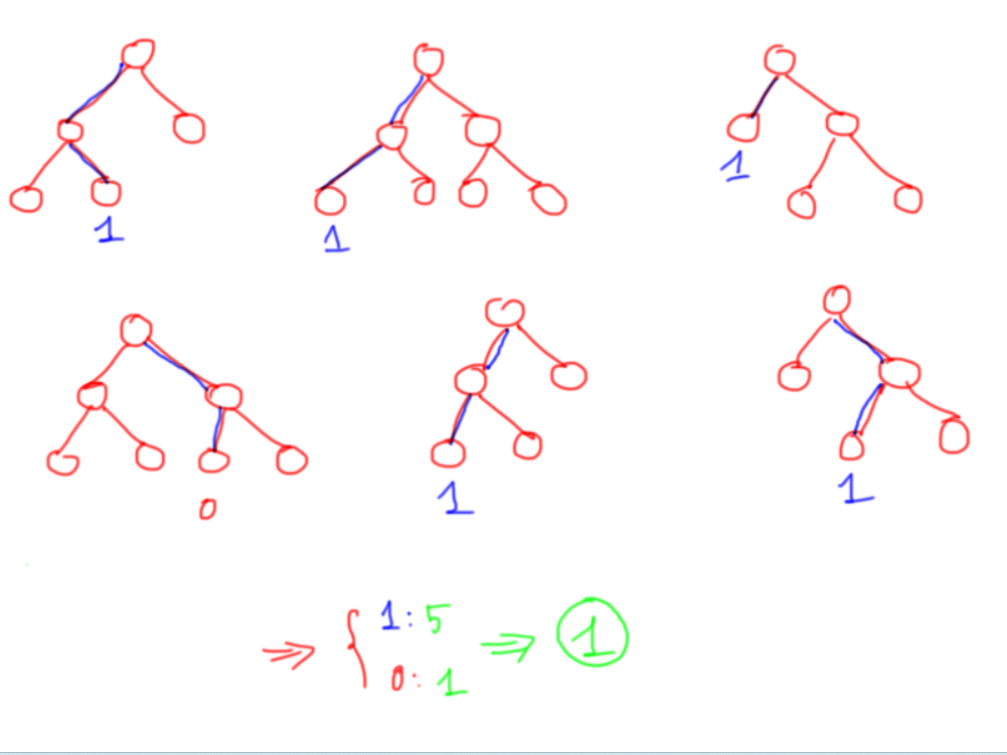 1
1
1
0
1
1
⇒ { 1: 5 ⇒ 1
0: 1